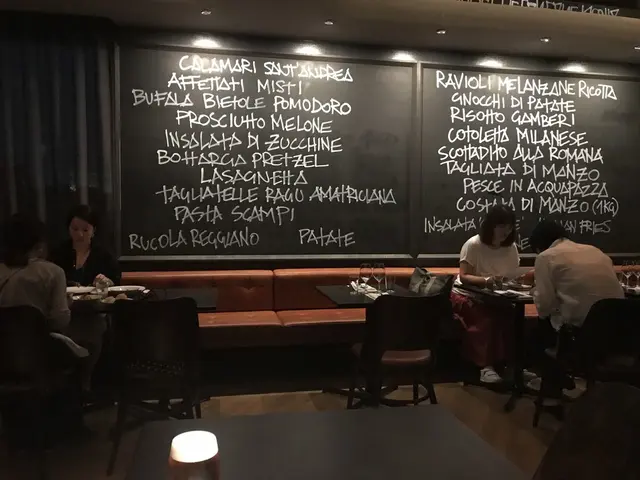 CALAMARI SANT'ANDREA
AFFETTATI MISTI
BUFALA BIETOLE POMODORO
PROSCIUTTO MELONE
INSALATA DI ZUCCHINE
BOTTARGA PRETZEL
LASAGNETTA
TAGLIATELLE RAGU AMATRICIANA
PASTA SCAMPI
RUCOLA REGGIANO PATATE
RAVIOLI MELANZANE RICOTTA
GNOCCHI DI PATATE
RISOTTO GAMBERI
COTOLETTA MILANESE
SCOTTADITO ALLA ROMANA
TAGLIATA DI MANZO
PESCE IN ACQUAPAZZA
COSTATA DI MANZO (1KG)
INSALATA FRIES